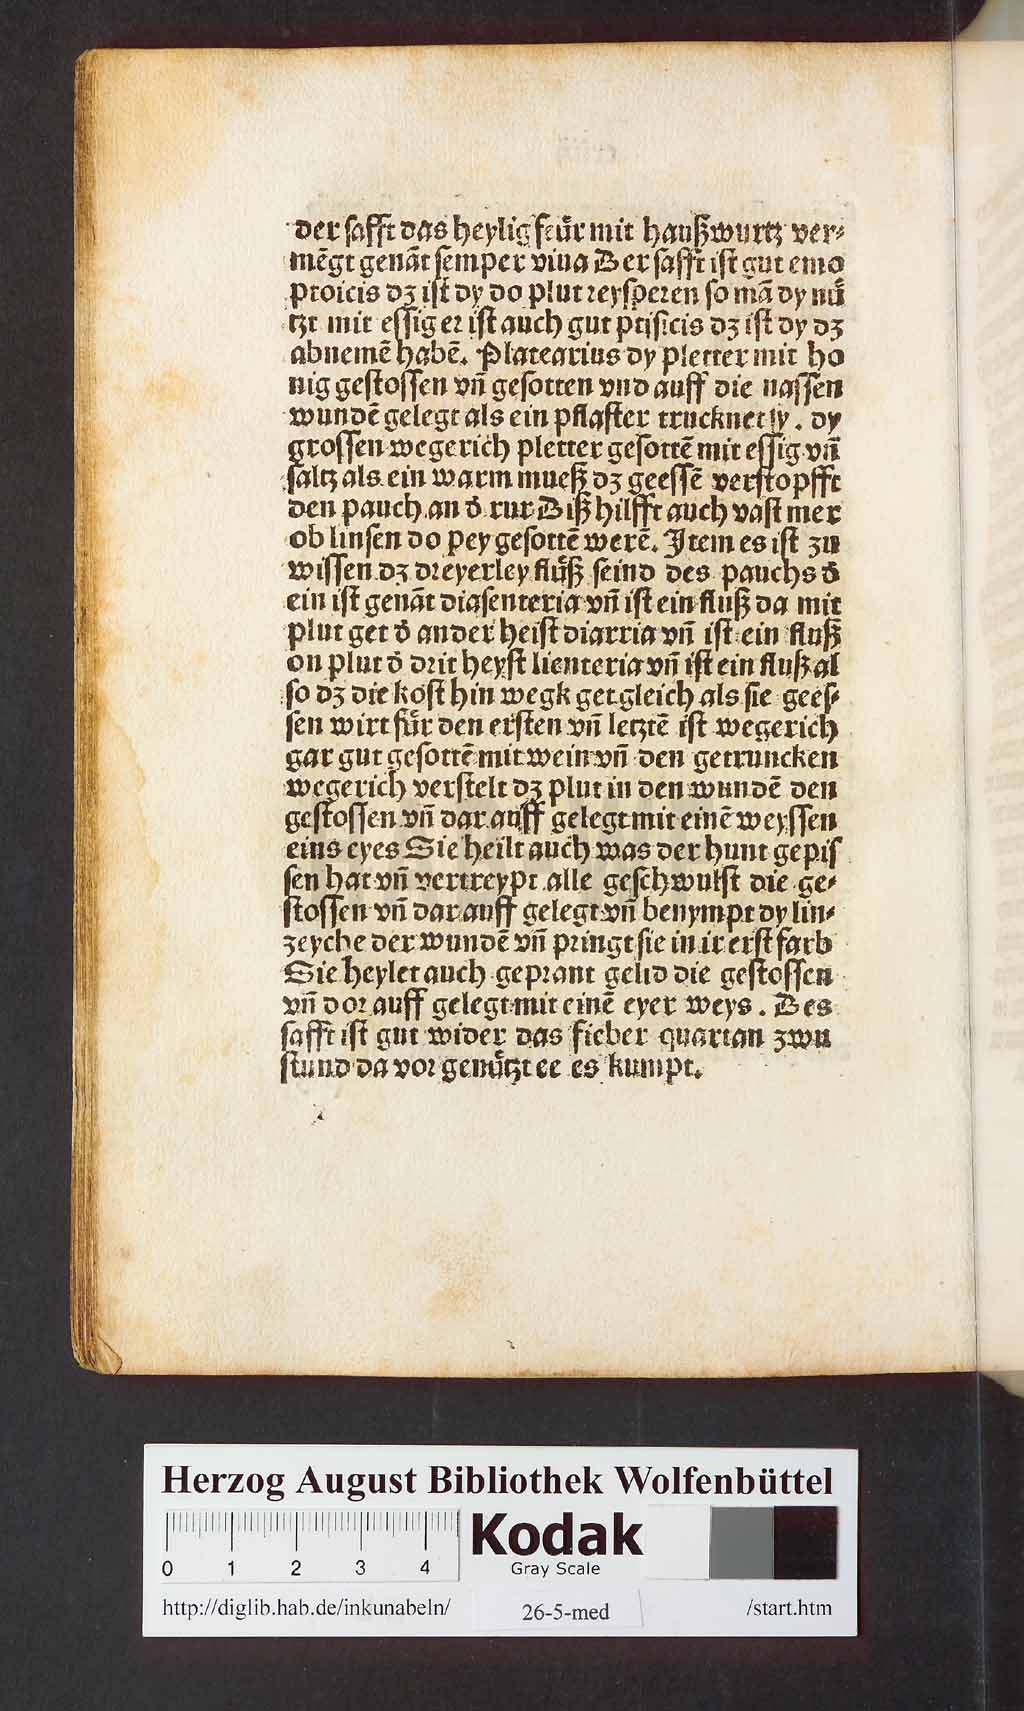 der safft das heylig feuͤr mit haußwurtz ver-
mēgt genāt semper viua Der safft ist gut emo
ptoicis dz ist dy do plut reysperen so mā dy nuͤ
tzt mit essig er ist auch gut ptisicis dz ist dy dz
abnemē habē. Platearius dy pletter mit ho
nig gestossen vn̄ gesotten vnd auff die nassen
wundē gelegt als ein pflaster trucknet sy . dy
grossen wegerich pletter gesottē mit essig vn̄
saltz als ein warm mueß dz geessē verstopfft
den pauch an d̓ rur Diß hilfft auch vast mer
ob linsen do pey gesottē werē. Item es ist zu
wissen dz dreyerley fluͤß seind des pauchs d̓
ein ist genāt diasenteria vn̄ ist ein fluß da mit
plut get d̓ ander heist diarria vn̄ ist ein fluß
on plut d̓ drit heyst lienteria vn̄ ist ein fluß al
so dz die kost hin wegk get gleich als sie gees-
sen wirt fuͤr den ersten vn̄ letztē ist wegerich
gar gut gesottē mit wein vn̄ den getruncken
wegerich verstelt dz plut in den wundē den
gestossen vn̄ dar auff gelegt mit einē weyssen
eins eyes Sie heilt auch was der hunt gepis
sen hat vn̄ vertreypt alle geschwulst die ge-
stossen vn̄ dar auff gelegt vn̄ benympt dy lin-
zeyche der wundē vn̄ pringt sie in ir erst farb
Sie heylet auch geprant gelid die gestossen
vn̄ dor auff gelegt mit einē eyer weys . Des
safft ist gut wider das fieber quartan zwu
stund da vor genuͤtzt ee es kumpt.
Herzog August Bibliothek Wolfenbüttel
0 1 2 3 4
Kodak
Gray Scale
http://diglib.hab.de/inkunabeln/ 26-5-med /start.htm